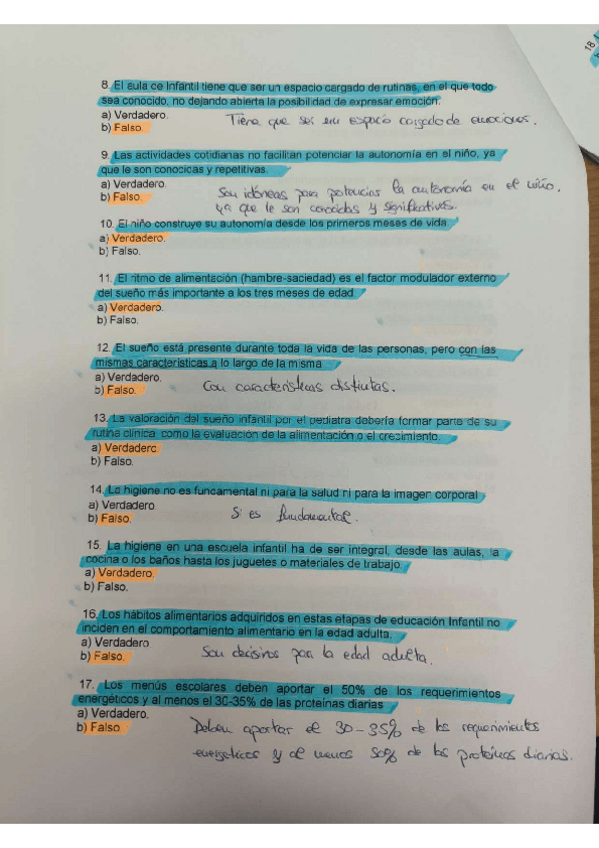 18
8. El aula de Infantil tiene que ser un espacio cargado de rutinas, en el que todo
sea conocido, no dejando abierta la posibilidad de expresar emoción.
a) Verdadero.
b) Falso.
Tiene que ser un espacio cargado de emociones.
9. Las actividades cotidianas no facilitan potenciar la autonomía en el niño, ya
que le son conocicas y repetitivas.
a) Verdadero.
b) Falso.
Son idóneas para potenciar la autonomía en el niño,
ya que le son conocidas y significativas.
10. El niño construye su autonomía desde los primeros meses de vida
a) Verdadero.
b) Falso.
11. El ritmo de alimentación (hambre-saciedad) es el factor modulador externo
del sueño más importante a los tres meses de edad
a) Verdadero.
b) Falso.
12. El sueño está presente durante toda la vida de las personas, pero con las
mismas características a lo largo de la misma
a) Verdadero.
b) Falso.
Con características distintas.
13. La valoración del sueño infantil por el pediatra debería formar parte de su
rutina clínica, como la evaluación de la alimentación o el crecimiento.
a) Verdadero.
b) Falso.
14. La higiene no es funcamental ni para la salud ni para la imagen corporal
a) Verdadero
b) Falso.
Si es fundamental.
15. La higiene en una escuela infantil ha de ser integral, desde las aulas, la
cocina o los baños hasta los juguetes o materiales de trabajo.
a) Verdadero.
b) Falso.
16. Los hábitos alimentarios adquiridos en estas etapas de educación Infantil no
inciden en el comportamiento alimentario en la edad adulta.
a) Verdadero
b) Falso.
Son decisivos para la edad adulta.
17. Los menús escolares deben aportar el 50% de los requerimientos
energéticos y al menos el 30-35% de las proteínas diarias
a) Verdadero.
b) Falso
Deben aportar el 30-35% de los requerimientos
energéticos y al menos 50% de las proteínas diarias.